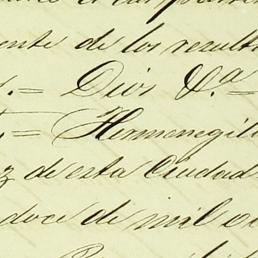 ente de los result
.= Dios &.ª =
= Hermenegil
z de esta Ciudad
doce de mil o